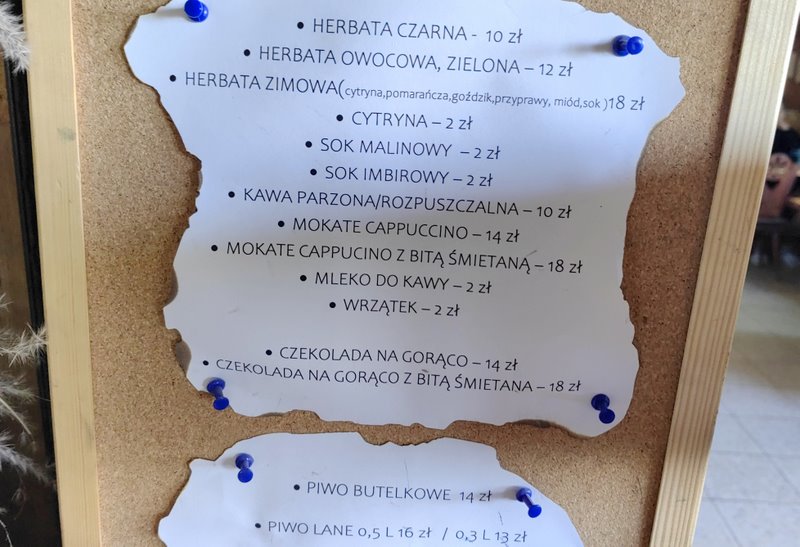 • HERBATA CZARNA - 10 zł
• HERBATA OWOCOWA, ZIELONA – 12 zł
• HERBATA ZIMOWA(cytryna,pomarańcza,goździk,przyprawy, miód,sok )18 zł
• CYTRYNA – 2 zł
• SOK MALINOWY – 2 zł
• SOK IMBIROWY – 2 zł
• KAWA PARZONA/ROZPUSZCZALNA – 10 zł
• MOKATE CAPPUCCINO – 14 zł
• MOKATE CAPPUCINO Z BITĄ ŚMIETANĄ – 18 zł
• MLEKO DO KAWY – 2 zł
• WRZĄTEK – 2 zł
• CZEKOLADA NA GORĄCO – 14 zł
• CZEKOLADA NA GORĄCO Z BITĄ ŚMIETANA – 18 zł
• PIWO BUTELKOWE 14 zł
• PIWO LANE 0,5 L 16 zł / 0,3 L 13 zł